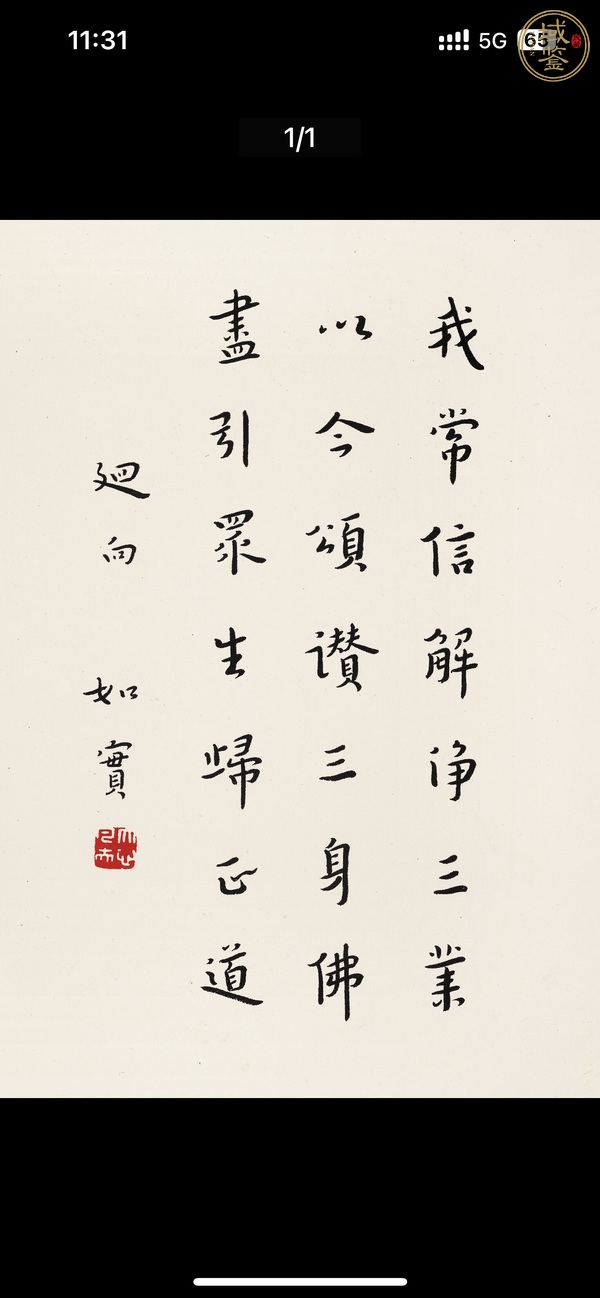 11:31
5G
65
1/1
我常信解淨三業
以今頌讃三身佛
盡引眾生歸正道
廻向 如實